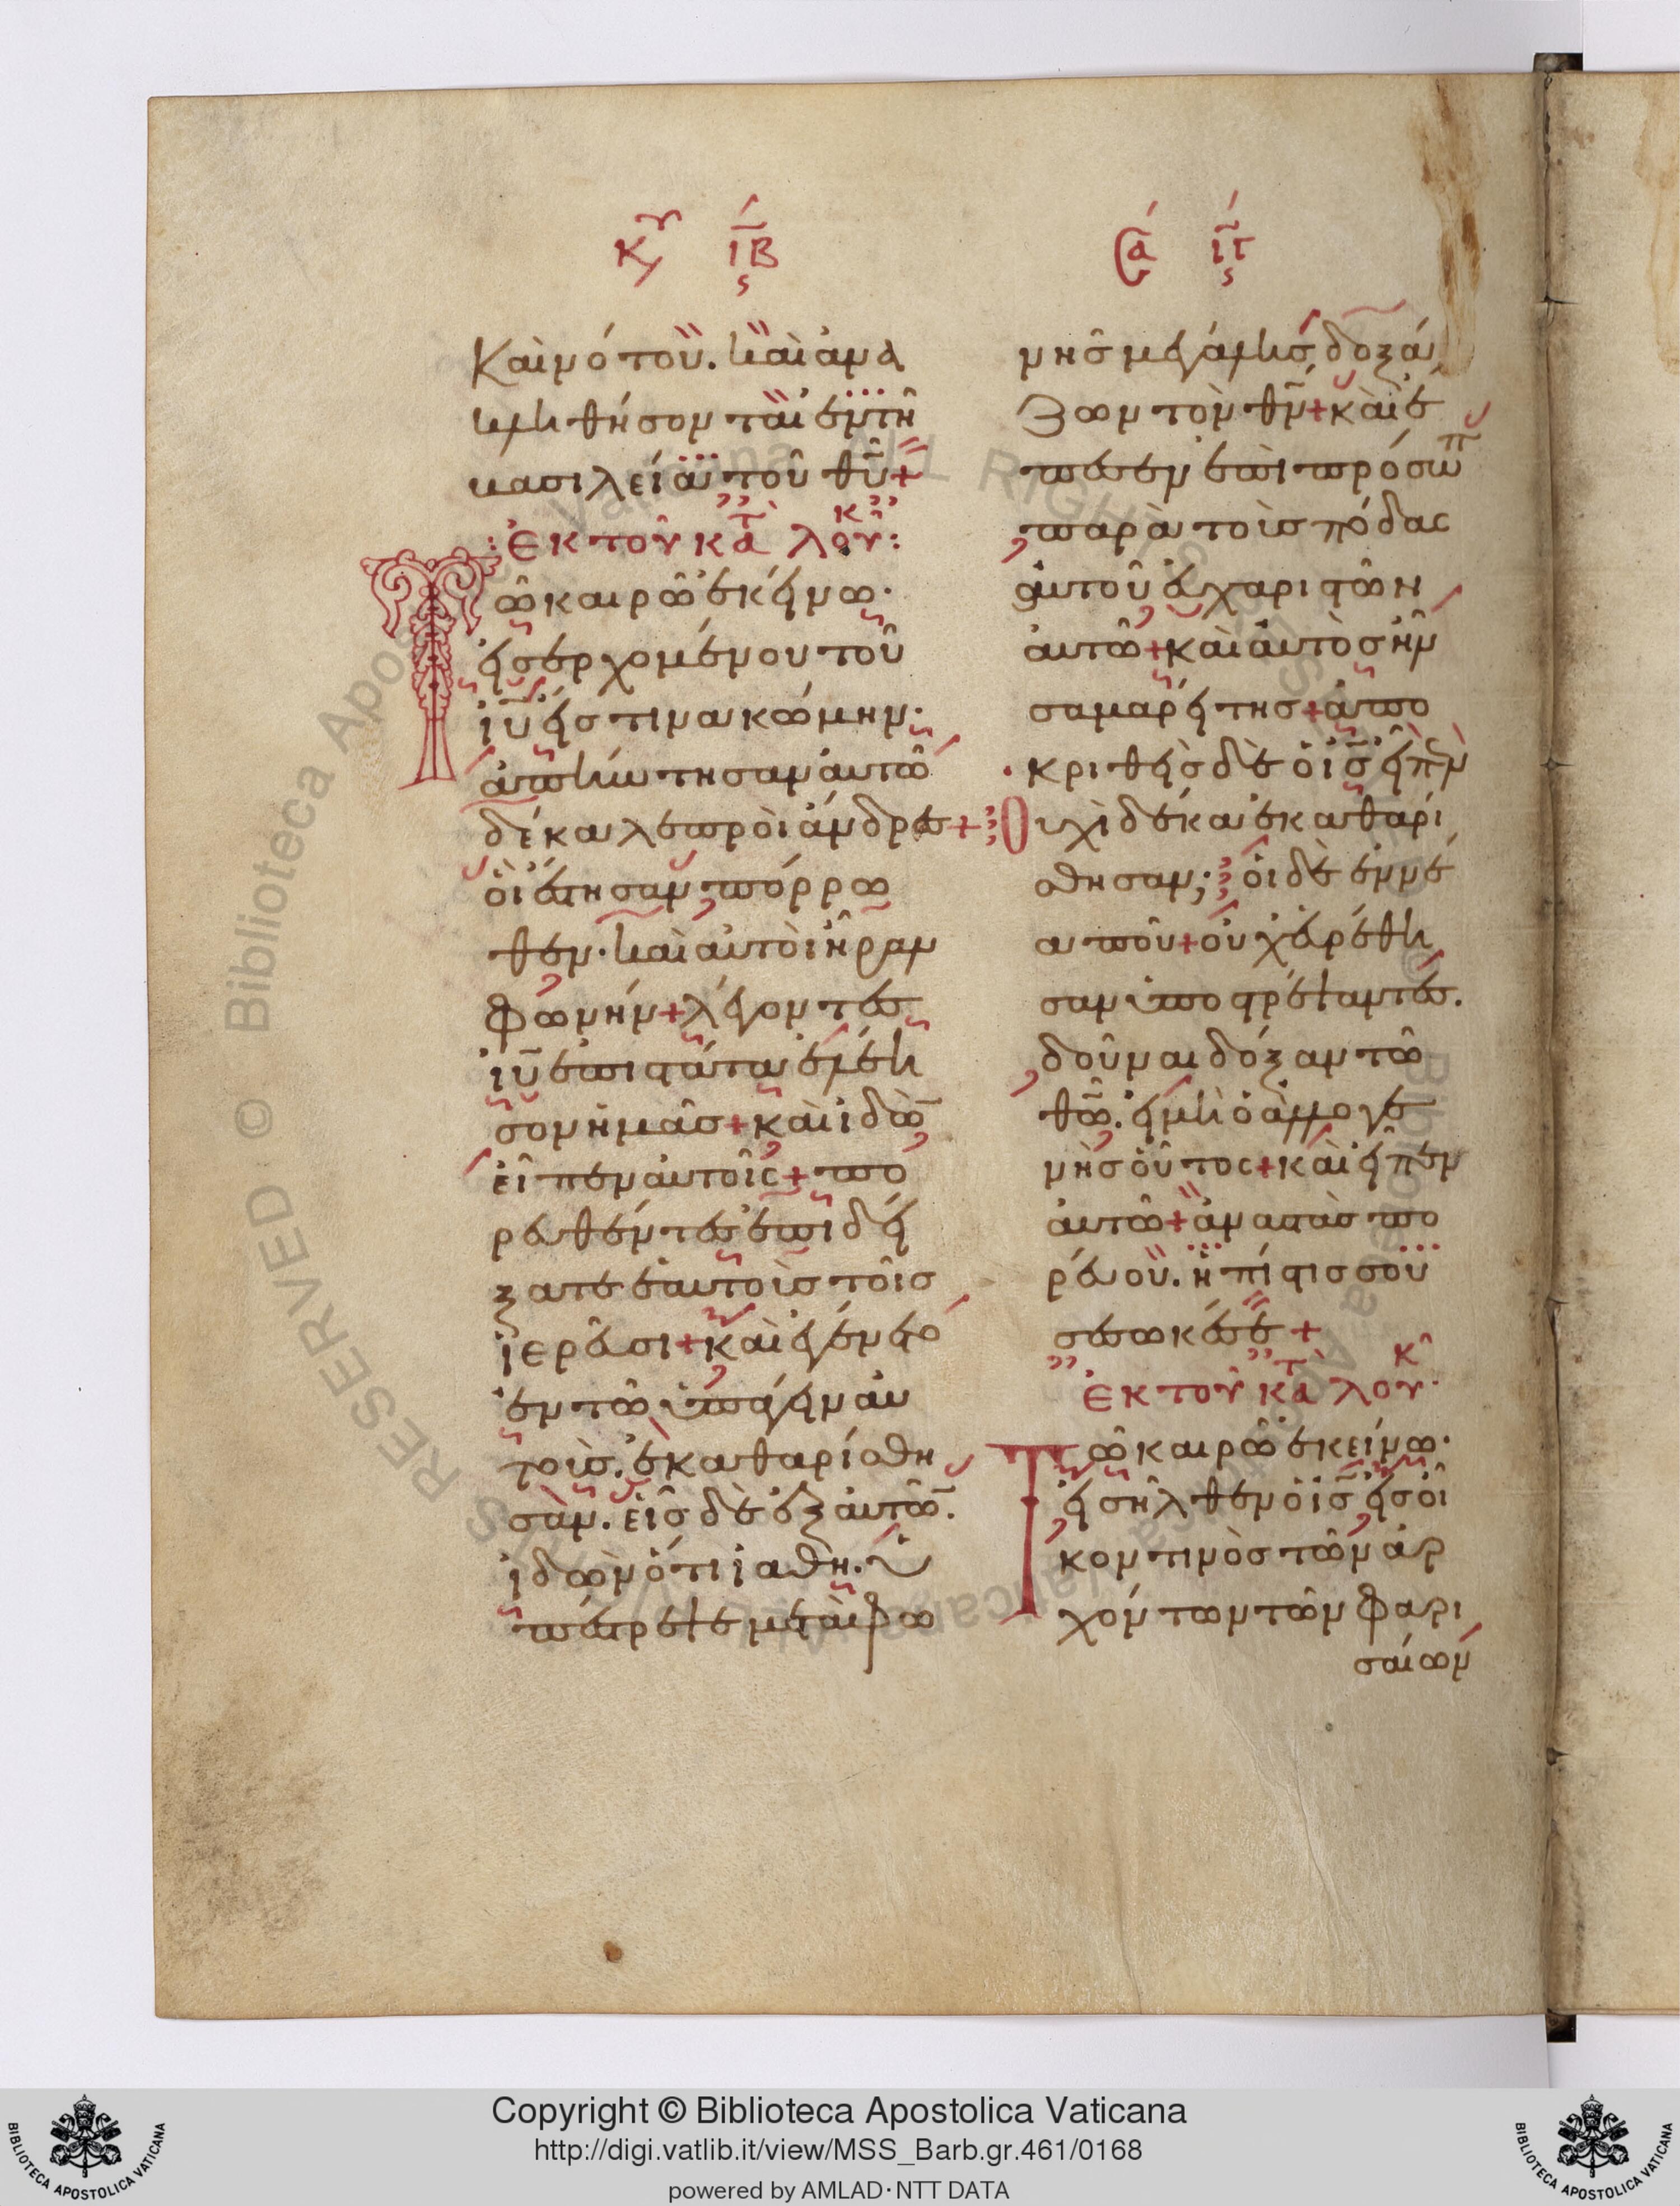 κυ ιβ
Καὶ νότου. καὶ ἀνα
κληθήσονται ἐν τῆ
βασιλεία τοῦ θῦ+
ἐκ τοῦ κατὰ λουκ:
Τῶ καιρῶ ἐκείνω.
εἰσερχομένου τοῦ
ἰῦ εἴς τινα κώμην.
ἀπήντησαν αὐτῶ
δέκα λεπροὶ ἄνδρες+
ὃι ἔστησαν πόρρω
θεν. καὶ αὐτοὶ ἦραν
φωνὴν+λέγοντες
ἰῦ ἐπιστάτα ἐλέη
σον ἡμᾶσ+καὶ ἰδὼ̄
εἶπεν αὐτοῖς+πο
ρευθέντες ἐπιδεί
ξατε ἑαυτοὺσ τοῖσ
ἱερεῦσι+καὶ ἐγένετο
ἐν τῶ ὑπάγειν αὐ
τοὺσ. ἐκαθαρίσθη
σαν. εἷσ δὲ ἐξ αὐτῶ̄.
ἰδὼν ὅτι ἰάθη. ὑ
πέστρεψε μετὰ φω
σα ιγ
νῆσ μεγάλησ δοξά
ζων τὸν θν+καὶ ἔ
πεσεν ἐπὶ πρόσωπ
παρὰ τοὺσ πόδας
αὐτοῦ εὐχαριστῶν
αὐτῶ+καὶ αὐτὸσ ἦν
σαμαρείτησ+ἀπο
κριθεὶσ δὲ ὁ ισ εἶπεν
Ουχὶ δέκα ἐκαθαρί
σθησαν; οἱ δὲ ἐννέ
α ποῦ+οὐχ εὑρέθη
σαν ὑποστρέψαντεσ.
δοῦναι δόξαν τῶ
θῶ. εἰ μὴ ὁ ἀλλογε
νὴσ οὗτος+καὶ εἶπεν
αὐτῶ+ἀναστὰσ πο
ρεύου. ἡ πίστισ σου
σέσωκέ σε+
ἐκ τοῦ κατὰ λουκ.
Τῶ καιρῶ ἐκείνω.
εἰσῆλθεν ὁ ισ εἰσ οἶ
κον τινὸσ τῶν ἀρ
χόντων τῶν φαρι
σαίων
Copyright © Biblioteca Apostolica Vaticana
http://digi.vatlib.it/view/MSS_Barb.gr.461/0168
powered by AMLAD·NTT DATA